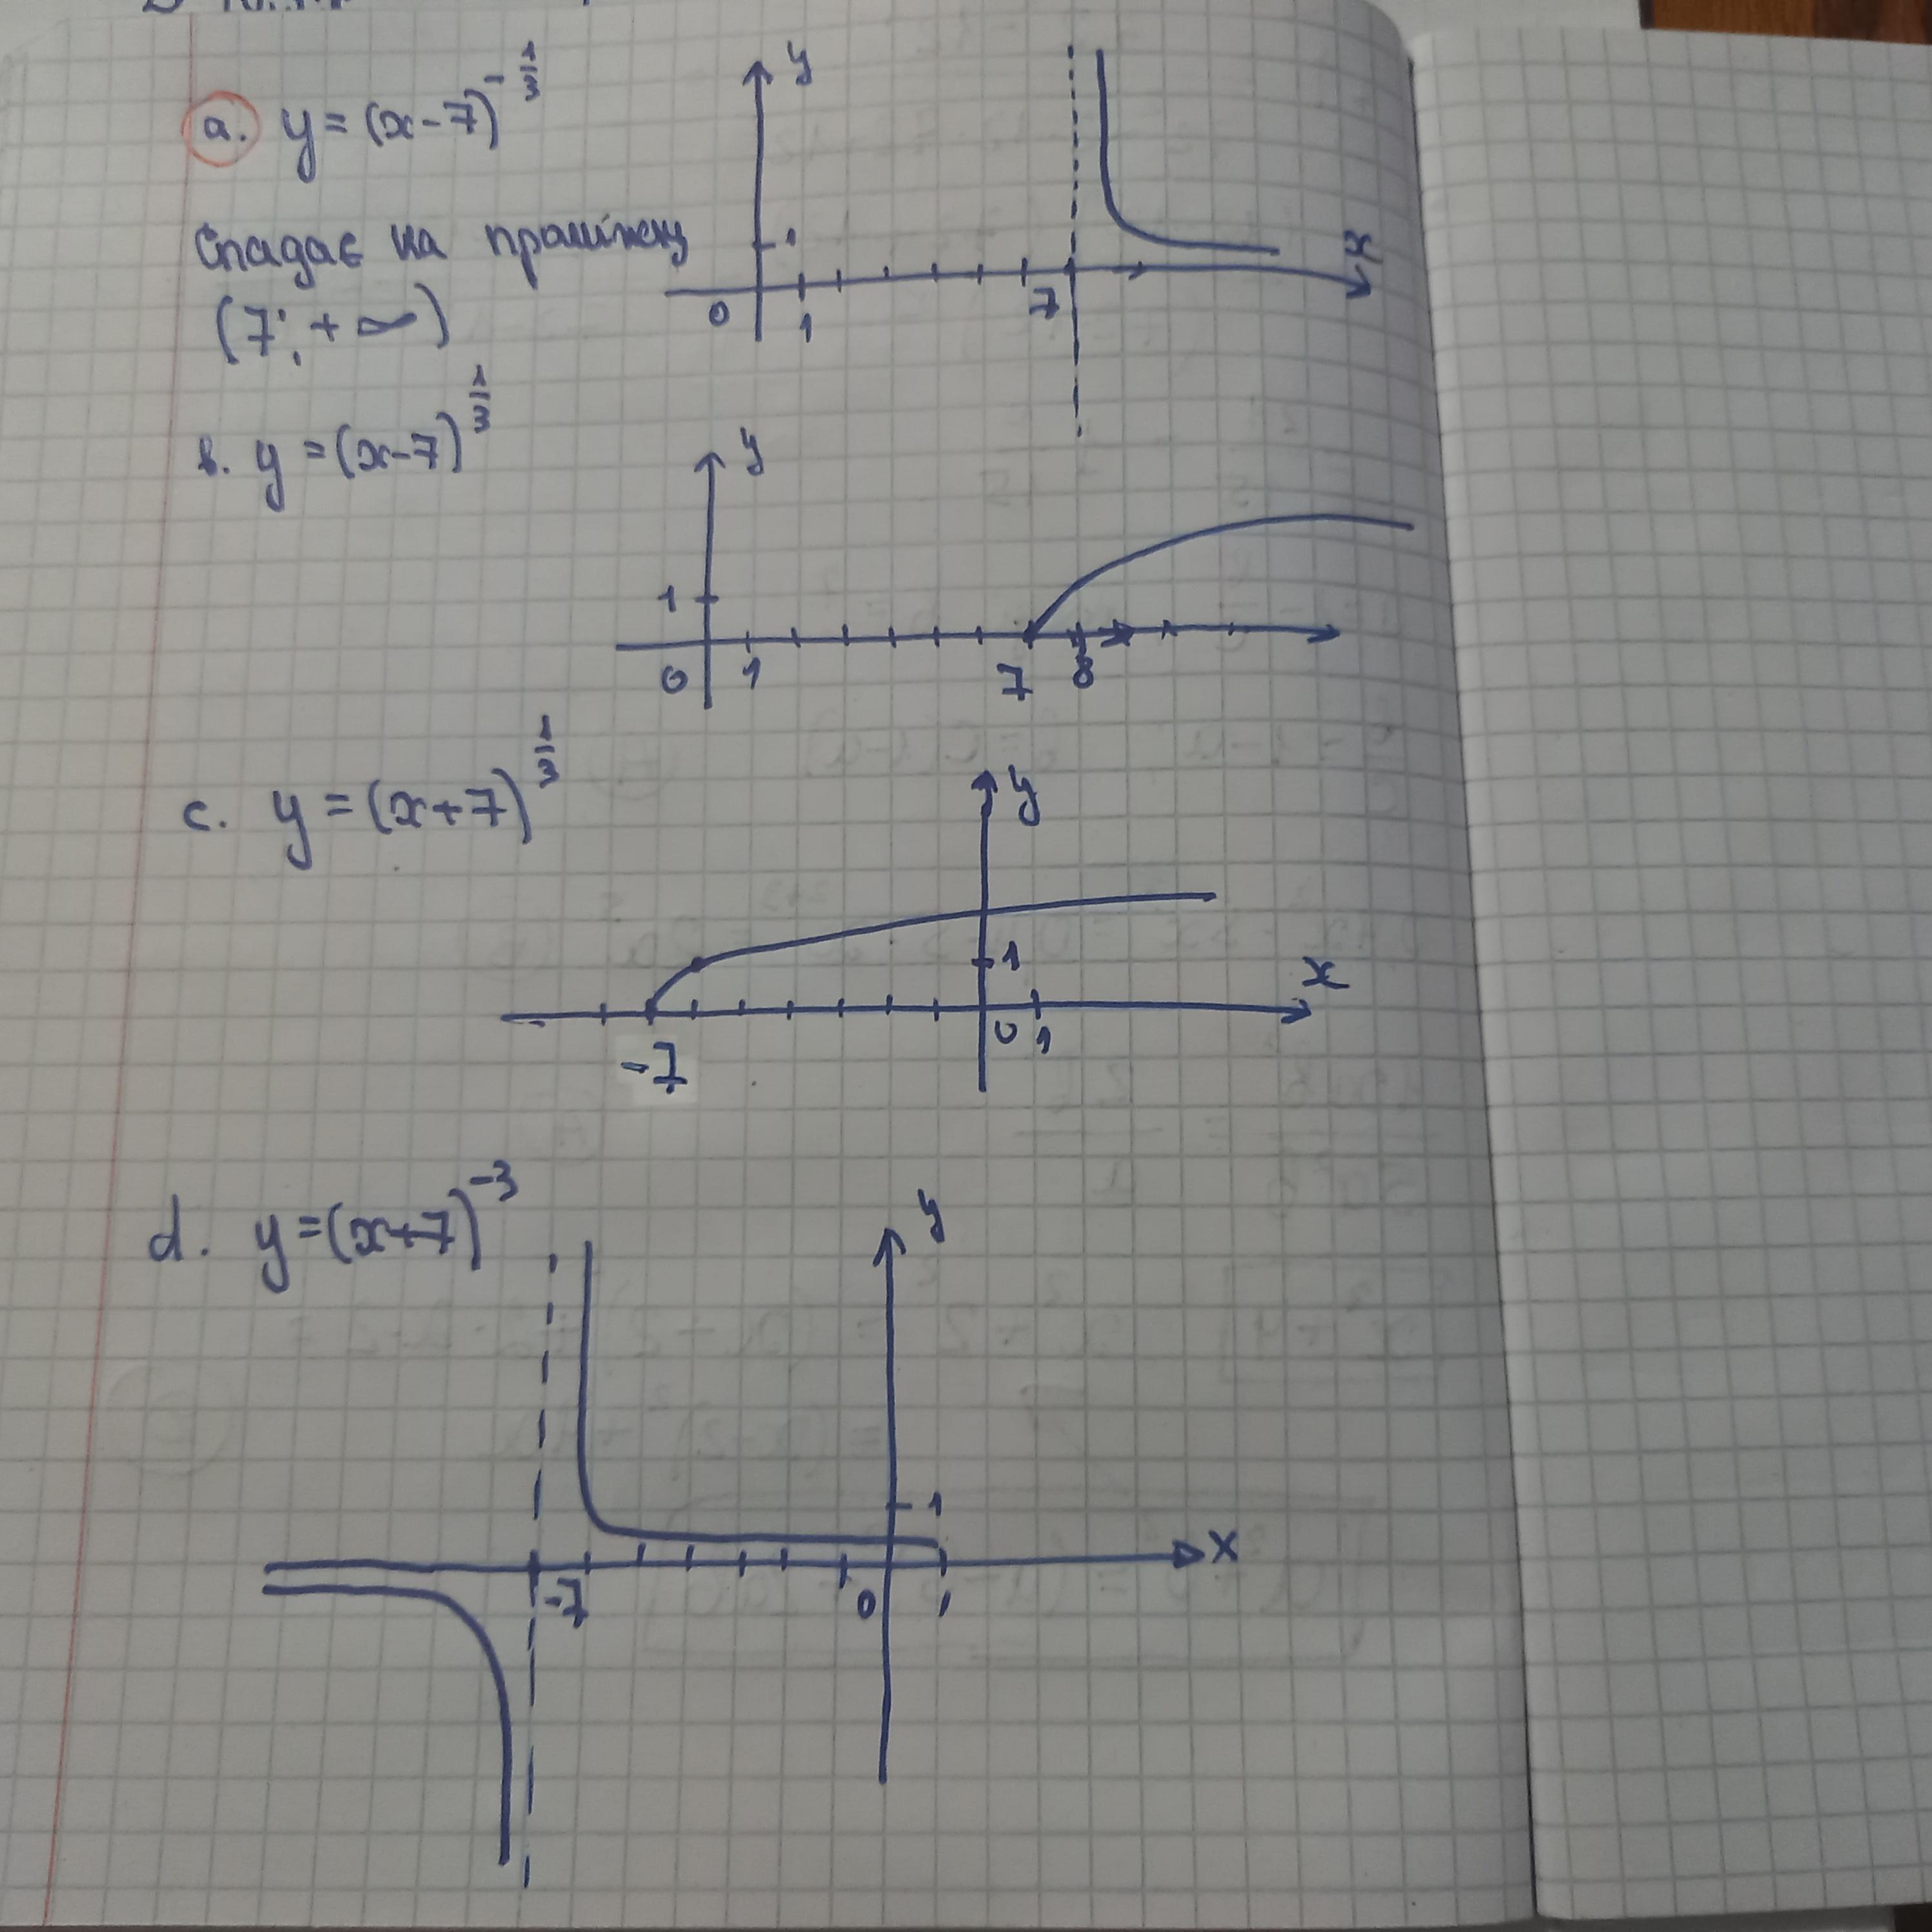 a. y = (x-7)^{-\frac{1}{3}}
y
Спадає на проміжку
1
x
(7; +∞)
0
1
7
b. y = (x-7)^{\frac{1}{3}}
y
1
0
1
7
8
c. y = (x+7)^{\frac{1}{3}}
y
1
x
0
1
-7
d. y = (x+7)^{-3}
y
1
x
-7
0
1